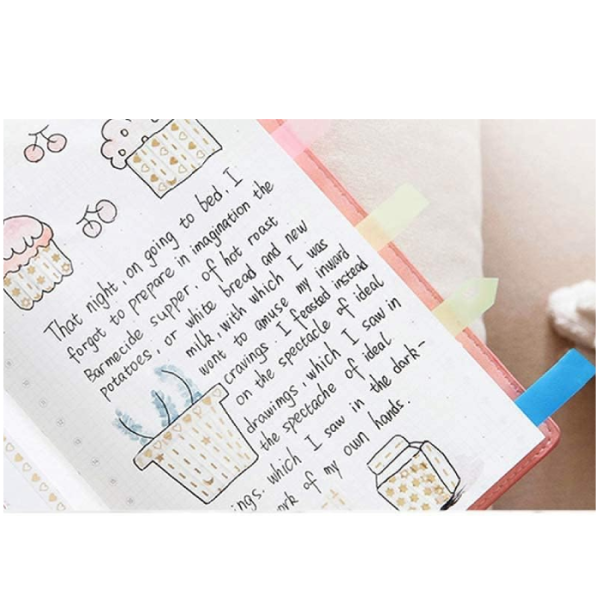 That night, on going to bed, I
forgot to prepare in imagination the
Barmecide supper, of hot roast
potatoes, or white bread and new
milk, with which I was
wont to amuse my inward
cravings. I feasted instead
on the spectacle of ideal
drawings, which I saw in
the spectache of ideal
ings. which I saw in the dark-
ork of my own hands.